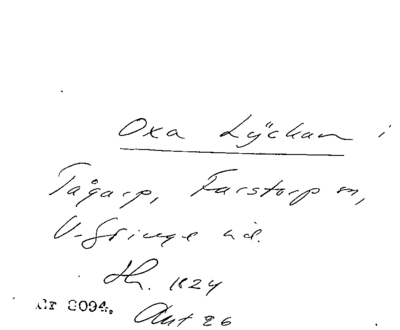 Oxa Lÿckan i
Tågarp, Farstorp sn,
V. Göinge hd.
Hh. 1824
Nr 8094. Akt 26